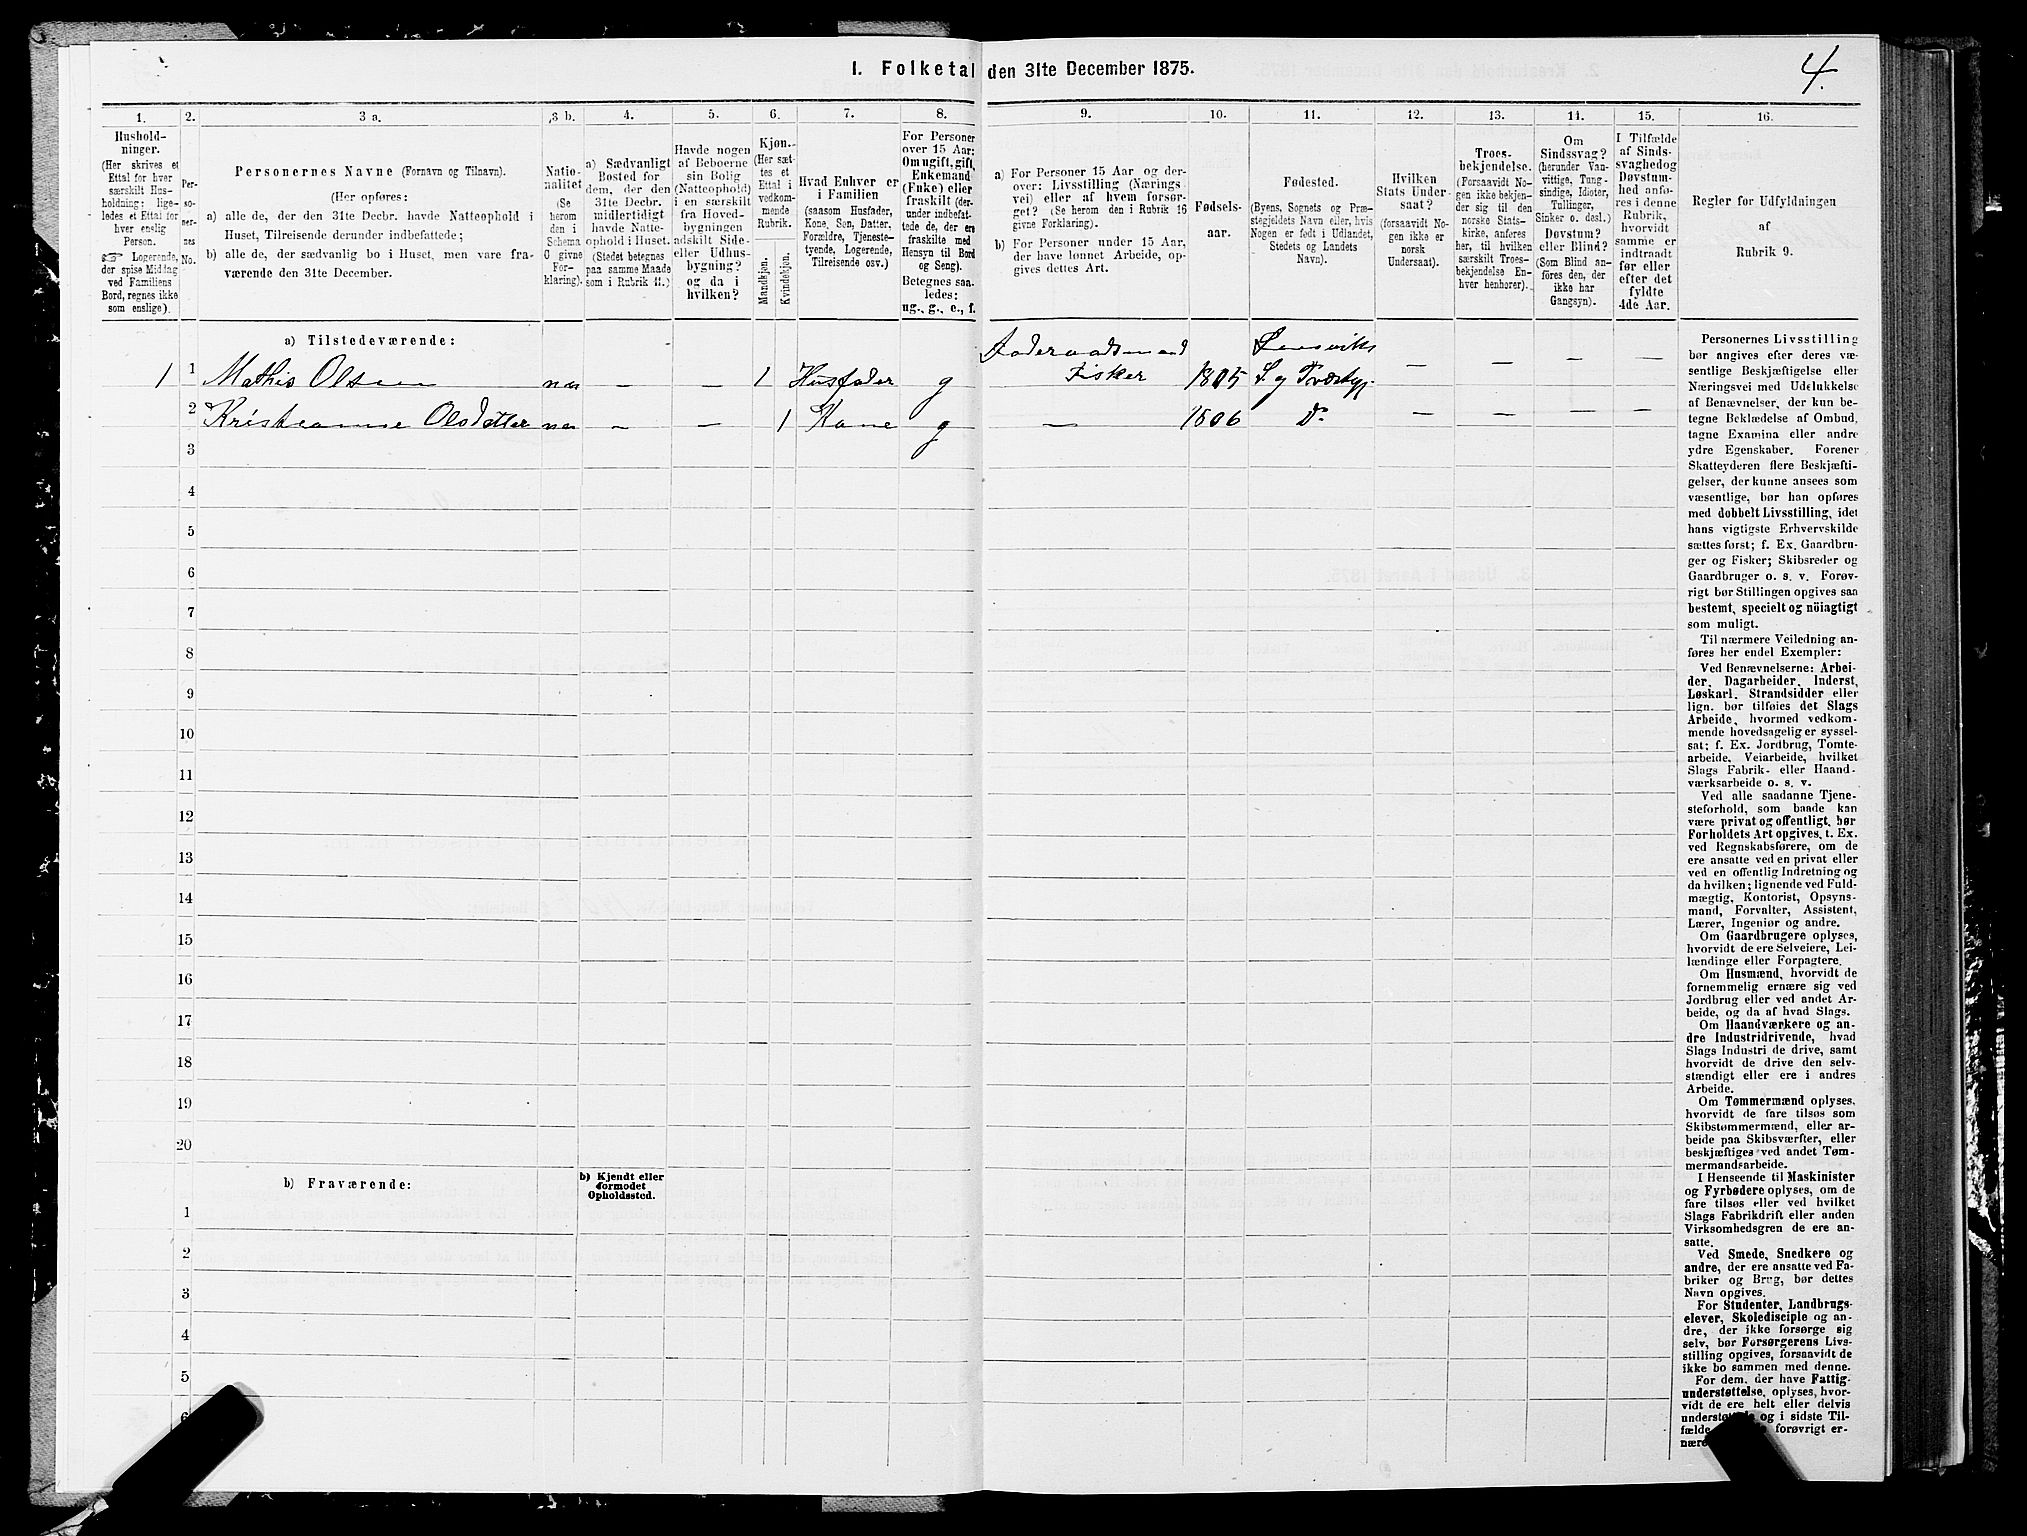 1. Folketal den 31te December 1875.
4.
1.
2.
3 a.
3 b.
4.
5.
6.
7.
8.
9.
10.
11.
12.
13.
14.
15.
16.
Hushold-
ninger.
(Her skrives et
Ettal for hver
særskilt Hus-
holdning; lige-
ledes et Ettal for
hver enslig
Person.
☞ Logerende,
der spise Middag
ved Familiens
Bord, regnes ikke
som enslige).
Per-
so-
ner-
nes
No.
Personernes Navne (Fornavn og Tilnavn).
(Her opføres:
a) alle de, der den 31te Decbr. havde Natteophold i
Huset, Tilreisende derunder indbefattede;
b) alle de, der sædvanlig bo i Huset, men vare fra-
værende den 31te December.
Natio-
nalitet
(Se
herom
den i
Schema
C givne
For-
klaring).
a) Sædvanligt
Bosted for
dem, der den
31te Decbr.
midlertidigt
havde Natte-
ophold i Huset.
(Stedet betegnes
paa samme Maade
som i Rubrik 11.)
Havde nogen
af Beboerne
sin Bolig
(Natteophold)
i en særskilt
fra Hoved-
bygningen
adskilt Side-
eller Udhus-
bygning?
og da i
hvilken?
Kjøn.
(Her sæt-
tes et
Ettal i
vedkom-
mende
Rubrik.
Mandkjøn.
Kvindekjøn.
Hvad Enhver er
i Familien
(saasom Husfader,
Kone, Søn, Datter,
Forældre, Tjeneste-
tyende, Logerende,
Tilreisende osv.)
For Personer
over 15 Aar:
Om ugift, gift,
Enkemand
(Enke) eller
fraskilt (der-
under indbefat-
tede de, der ere
fraskilte med
Hensyn til Bord
og Seng).
Betegnes saa-
ledes:
ug., g., e., f.
a) For Personer 15 Aar og der-
over: Livsstilling (Nærings-
vei) eller af hvem forsør-
get? (Se herom den i Rubrik 16
givne Forklaring).
b) For Personer under 15 Aar,
der have lønnet Arbeide, op-
gives dettes Art.
Fødsels-
aar.
Fødested.
(Byens, Sognets og Præ-
stegjeldets Navn eller, hvis
Nogen er født i Udlandet,
Stedets og Landets
Navn).
Hvilken
Stats Under-
saat?
(forsaavidt No-
gen ikke er
norsk
Undersaat).
Troes-
bekjendelse.
(Forsaavidt No-
gen ikke bekjen-
der sig til den
norske Stats-
kirke, anføres
her, til hvilken
særskilt Troes-
bekjendelse En-
hver henhører).
Om
Sindssvag?
(herunder Van-
vittige, Tung-
sindige, Idioter,
Tullinger,
Sinker o. desl.)
Døvstum?
eller Blind?
(Som Blind an-
føres den, der
ikke har
Gangsyn).
I Tilfælde
af Sinds-
svaghed og
Døvstum-
hed anfø-
res i denne
Rubrik,
hvorvidt
samme er
indtraadt
før eller
efter det
fyldte
4de Aar.
Regler for Udfyldningen
af
Rubrik 9.
a) Tilstedeværende:
1 1 Mathis Olsen nor — — 1 Husfader g Fisker 1805 — — — —
2 Olsdatter nor — — 1 Kone g — 1806 Do — — — —
3
4
5
6
7
8
9
10
11
12
13
14
15
16
17
18
19
20
b) Fraværende:
b) Kjendt eller
formodet
Opholdssted.
1
2
3
4
5
6
Personernes Livsstilling
bør angives efter deres væ-
sentlige Beskjæftigelse eller
Næringsvei med Udelukkelse
af Benævnelser, der kun be-
tegne Beklædelse af Ombud,
tagne Examina eller andre
ydre Egenskaber. Forener
Skatteyderen flere Beskjæfti-
gelser, der kunne ansees som
væsentlige, bør han opføres
med dobbelt Livsstilling, idet
hans vigtigste Erhvervskilde
sættes først; f. Ex. Gaardbru-
ger og Fisker; Skibsreder og
Gaardbruger o. s. v. Forøv-
rigt bør Stillingen opgives saa
bestemt, specielt og nöiagtigt
som muligt.
Til nærmere Veiledning an-
føres her endel Exempler:
Ved Benævnelserne: Arbei-
der, Dagarbeider, Inderst,
Løskarl, Strandsidder eller
lign. bør tilføies det Slags
Arbeide, hvormed vedkom-
mende hovedsagelig er syssel-
sat; f. Ex. Jordbrug, Tomte-
arbeide, Veiarbeide, hvilket
Slags Fabrik- eller Haand-
værksarbeide o. s. v.
Ved alle saadanne Tjene-
steforhold, som baade kan
være privat og offentligt, bør
Forholdets Art opgives, t. Ex.
ved Regnskabsførere, om de
ere ansatte ved en privat eller
ved en offentlig Indretning og
da hvilken; lignende ved Fuld-
mægtig, Kontorist, Opsyns-
mand, Forvalter, Assistent,
Lærer, Ingeniør og andre.
Om Gaardbrugere oplyses,
hvorvidt de ere Selveiere, Lei-
lændinge eller Forpagtere.
Om Husmænd, hvorvidt de
fornemmelig ernære sig ved
Jordbrug eller ved andet Ar-
beide, og da af hvad Slags.
Om Haandværkere og an-
dre Industridrivende, hvad
Slags Industri de drive, samt
hvorvidt de drive den selv-
stændigt eller ere i andres
Arbeide.
Om Tømmermænd oplyses,
hvorvidt de fare tilsøs som
Skibstømmermænd, eller ar-
beide paa Skibsværfter, eller
beskjæftiges ved andet Tøm-
mermandsarbeide.
I Henseende til Maskinister
og Fyrbødere oplyses, om de
fare tilsøs eller ved hvilket
Slags Fabrikdrift eller anden
Virksomhedsgren de ere an-
satte.
Ved Smede, Snedkere og
andre, der ere ansatte ved Fa-
briker og Brug, bør dettes
Navn opgives.
For Studenter, Landbrugs-
elever, Skoledisciple og an-
dre, der ikke forsørge sig
selv, bør Forsørgerens Livs-
stilling opgives, forsaavidt de
ikke bo sammen med denne.
For dem, der have Fattig-
understøttelse, oplyses, hvor-
vidt de ere helt eller delvis
og i sidste Til-
fælde forøvrigt er-